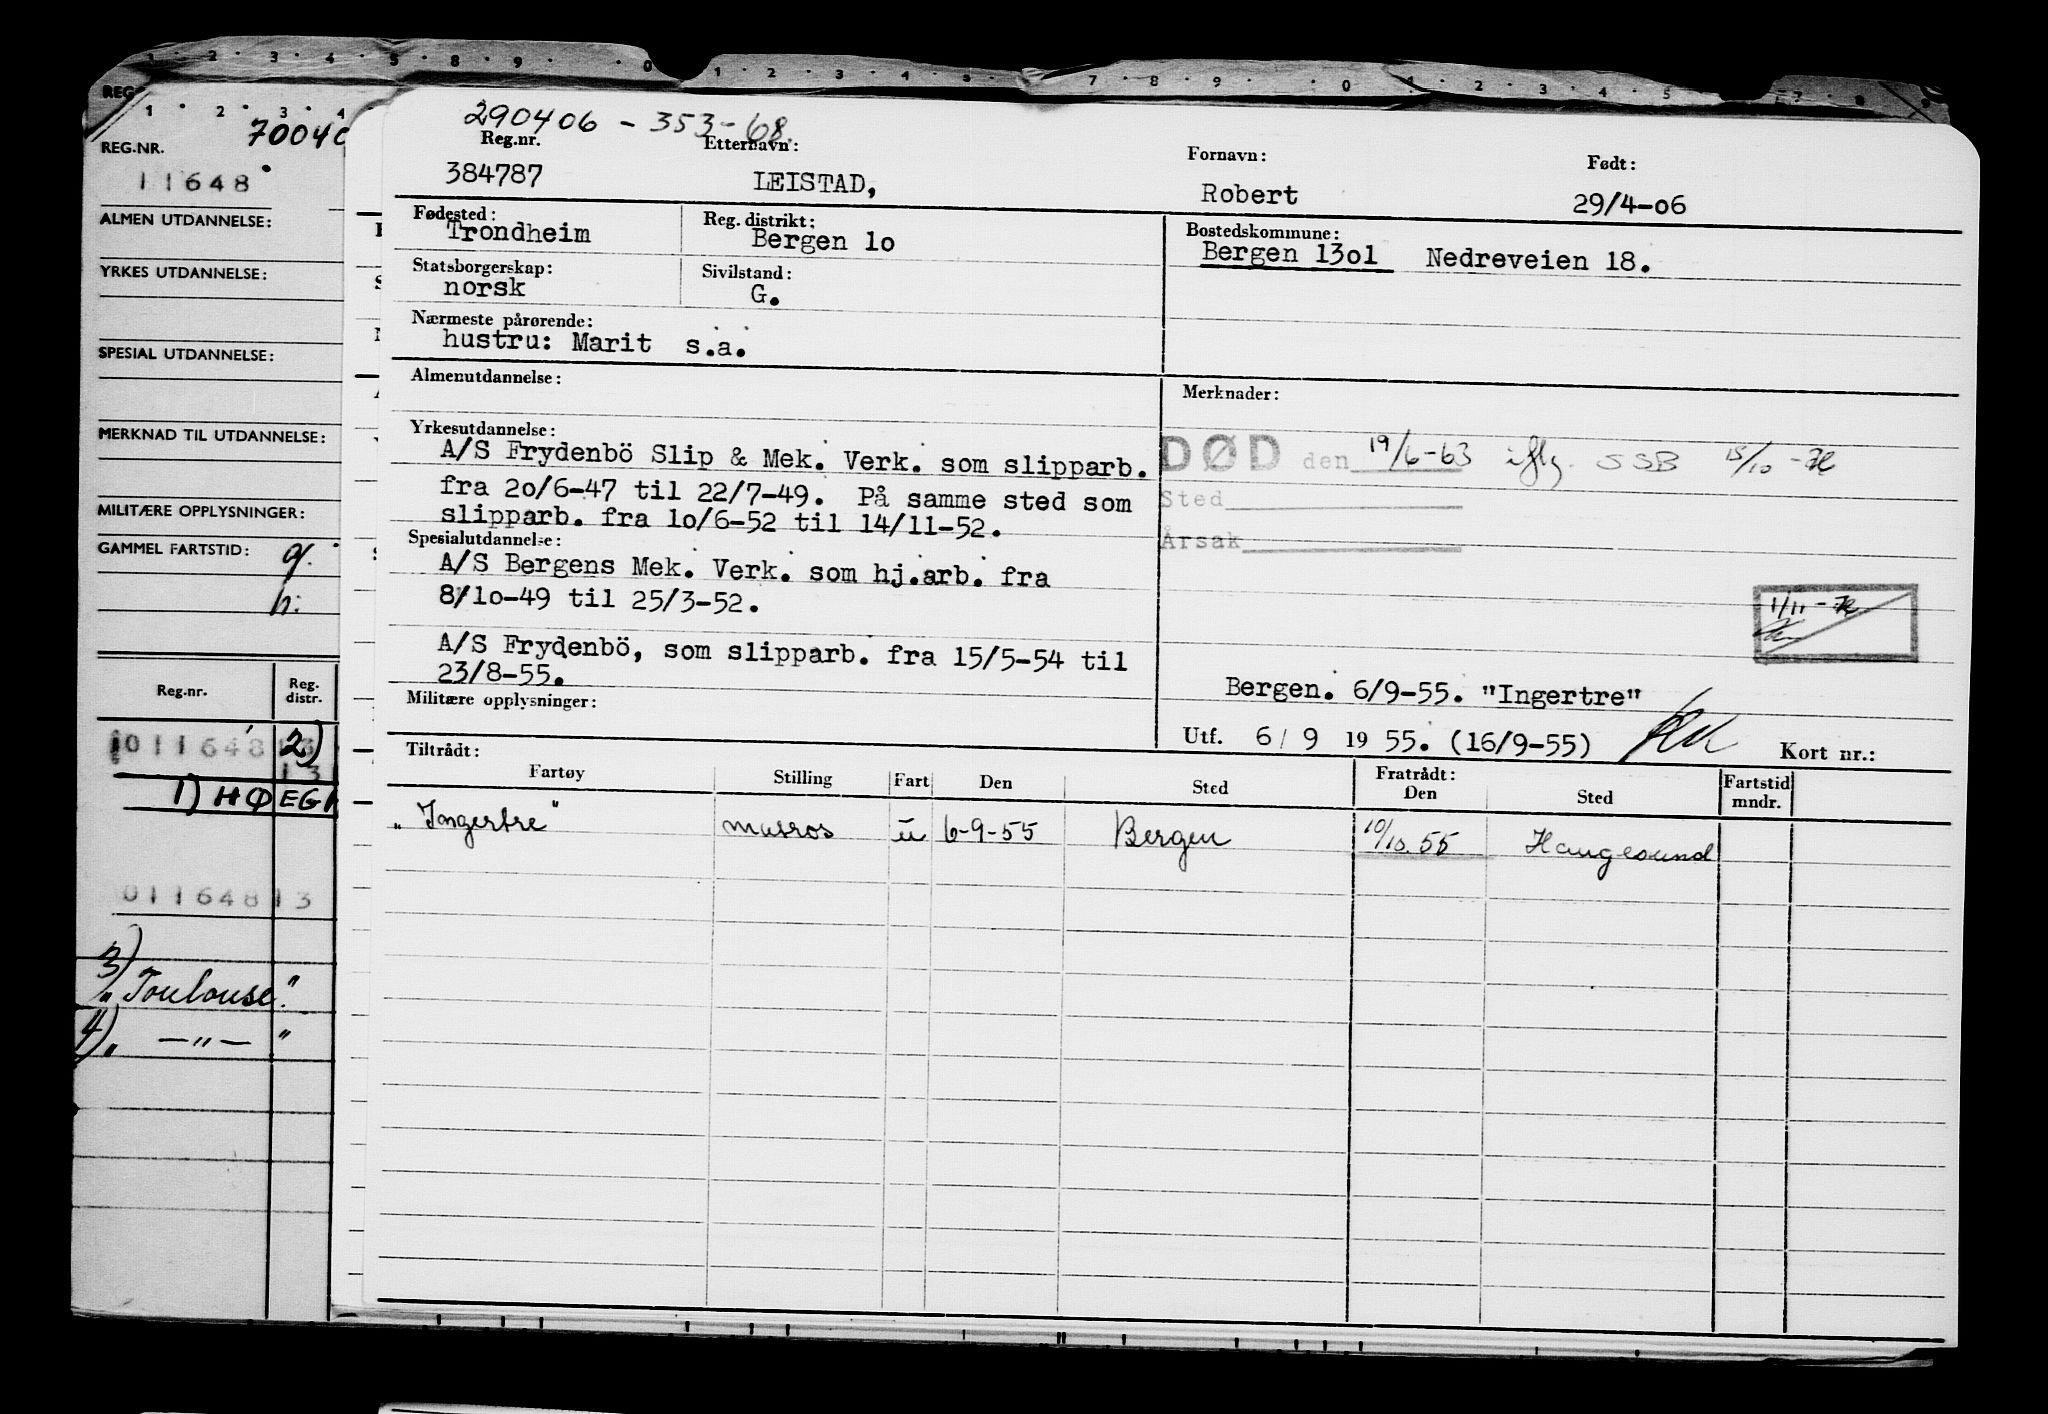 1 2 3 4 5 8 9 0 1 2 3 4 5 7 8 9 0 1 2 3 4 5 7 8 9
REG
1 2 3 4
70040
REG.NR.
11648
ALMEN UTDANNELSE:
YRKES UTDANNELSE:
SPESIAL UTDANNELSE:
MERKNAD TIL UTDANNELSE:
MILITÆRE OPPLYSNINGER:
GAMMEL FARTSTID: g:
h:
Reg.nr. Reg. distr.
011648 13 2)
13
1) HØEGH
011648 13
3)
„Toulouse" "
4) „ —"— "
290406 - 353-68.
Reg.nr. Etternavn: Fornavn: Født:
384787 LEISTAD, Robert 29/4-06
Fødested: Reg. distrikt: Bostedskommune:
Trondheim Bergen 1o Bergen 13o1 Nedreveien 18.
Statsborgerskap: Sivilstand:
norsk G.
Nærmeste pårørende:
hustru: Marit s.a.
Almenutdannelse: Merknader:
Yrkesutdannelse:
A/S Frydenbö Slip & Mek. Verk. som slipparb.
fra 2o/6-47 til 22/7-49. På samme sted som
slipparb. fra 1o/6-52 til 14/11-52.
Spesialutdannelse:
A/S Bergens Mek. Verk. som hj.arb. fra
8/1o-49 til 25/3-52.
A/S Frydenbö, som slipparb. fra 15/5-54 til
23/8-55.
Militære opplysninger:
DØD den 19/6-63 iflg. SSB 15/10
Sted
Årsak
1/11
Bergen. 6/9-55. "Ingertre"
Utf. 6/9 1955. (16/9-55) Kort nr.:
Tiltrådt: Fratrådt: Fartstid
Fartøy Stilling Fart Den Sted Den Sted mndr.
„Ingertre" matros u 6-9-55 Bergen 10/10.55 Haugesund